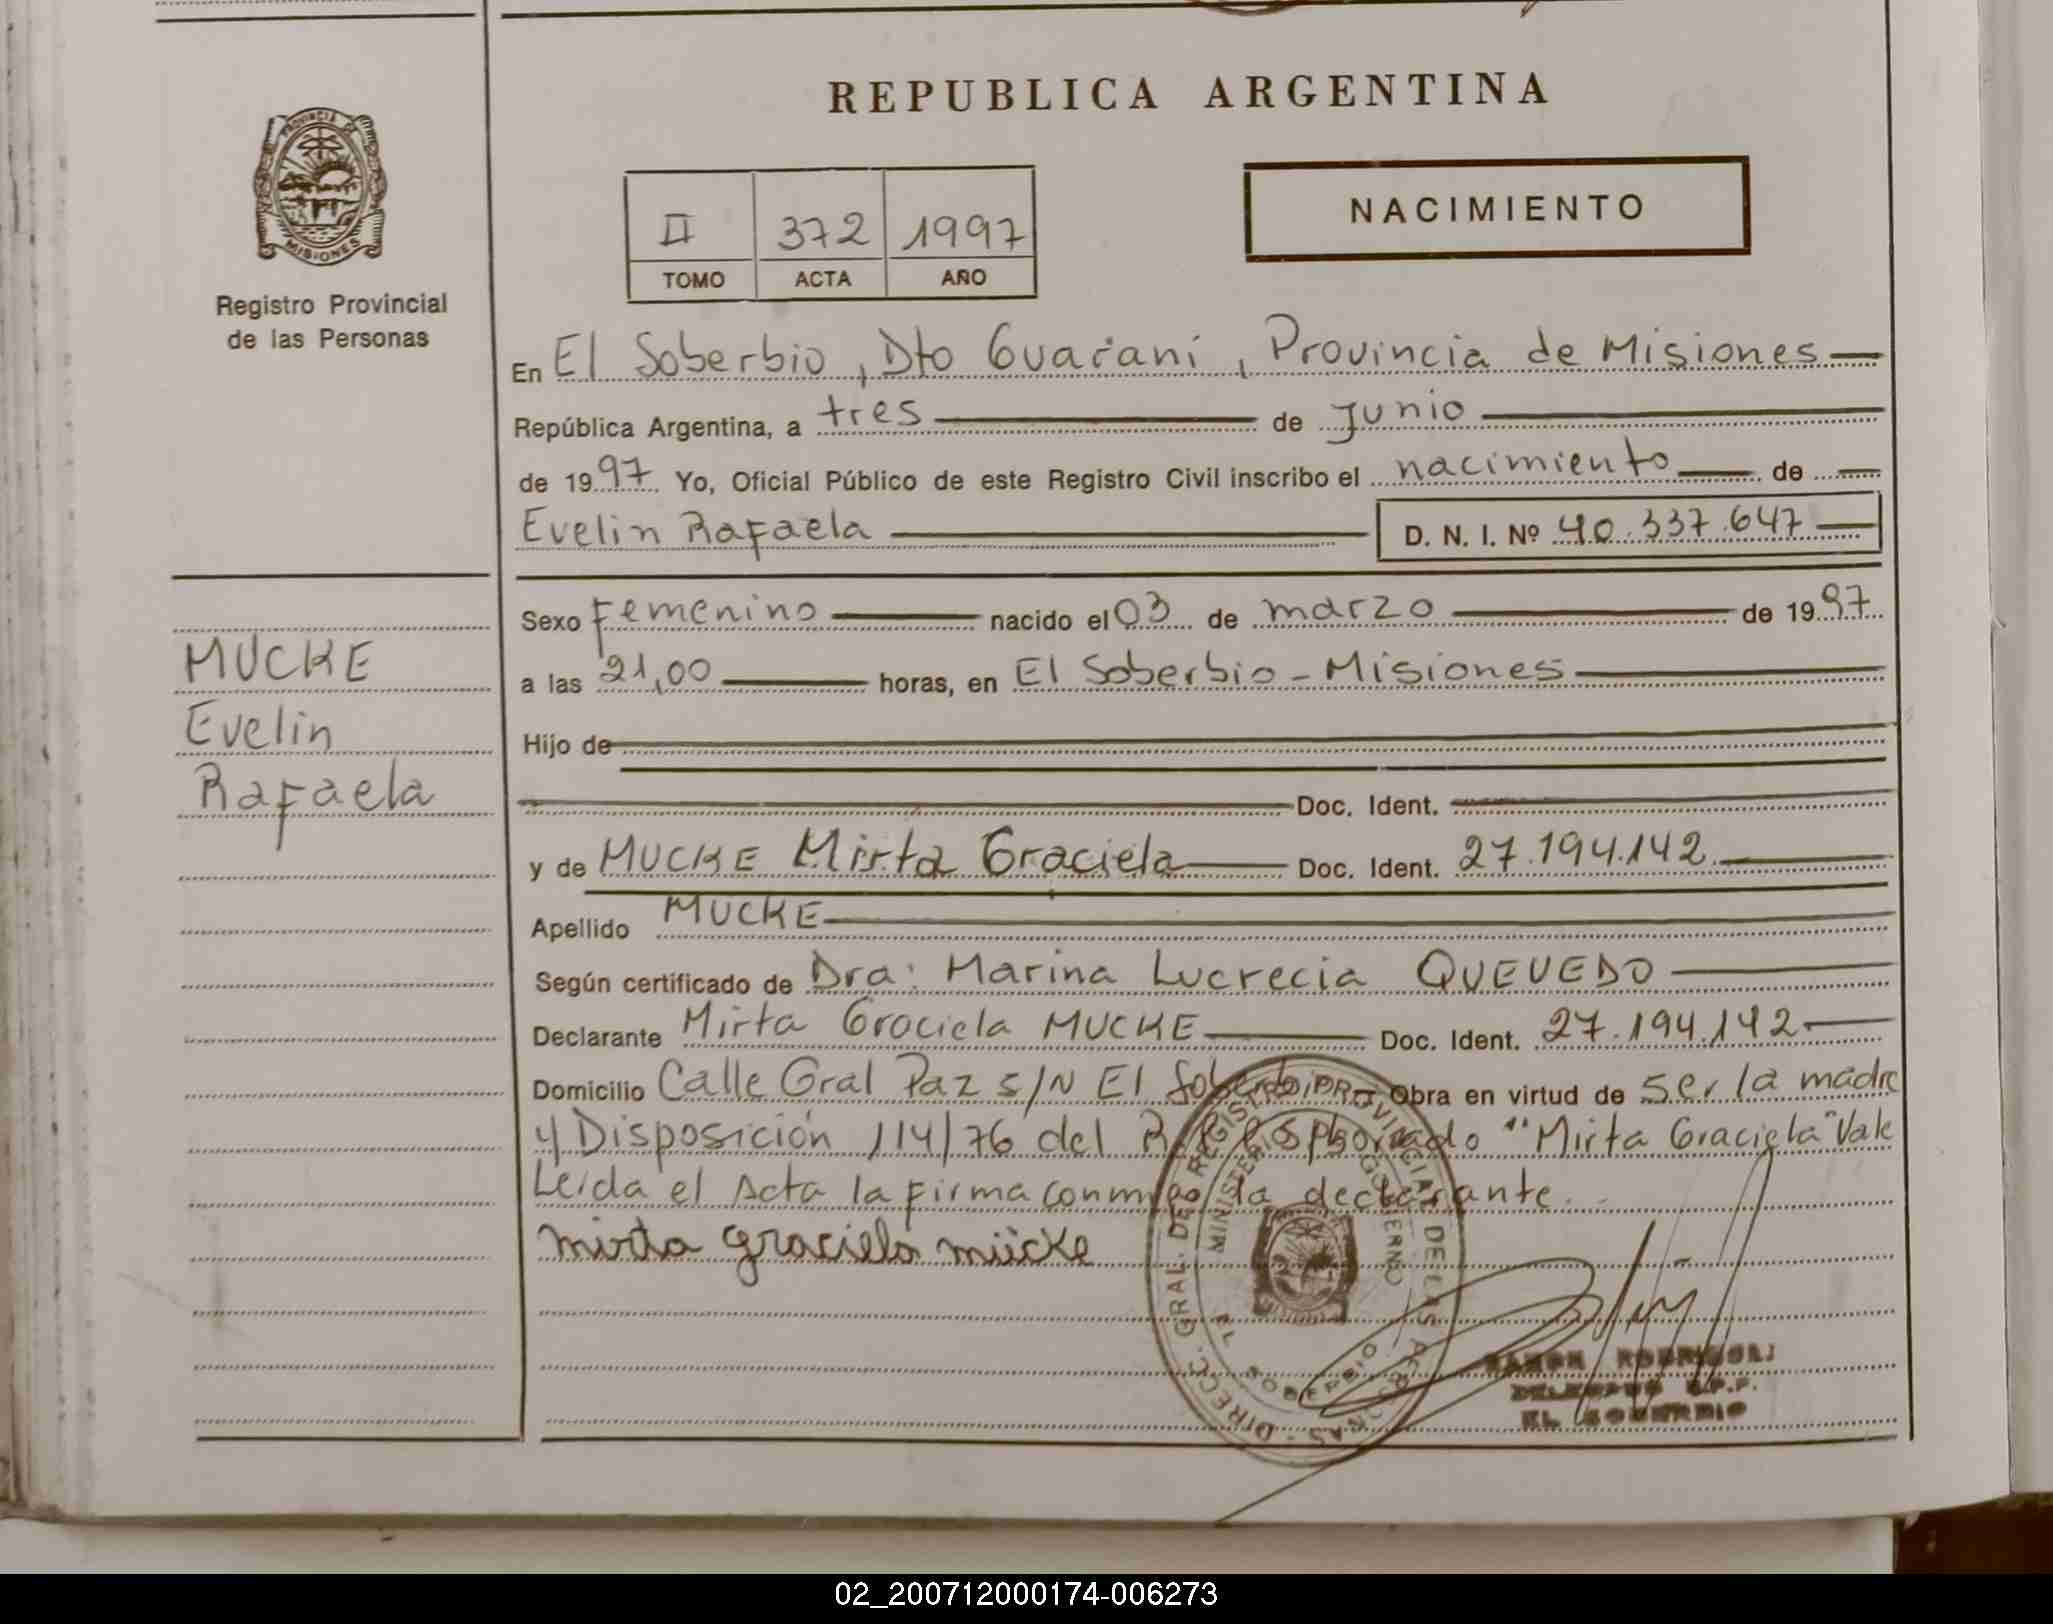 REPUBLICA ARGENTINA
PROVINCIA DE
MISIONES
Registro Provincial
de las Personas
II 372 1997
TOMO ACTA AÑO
NACIMIENTO
En El Soberbio, Dto Guaraní, Provincia de Misiones
República Argentina, a tres de Junio
de 1997 Yo, Oficial Público de este Registro Civil inscribo el nacimiento de
Evelin Rafaela D. N. I. Nº 40.337.647
Sexo Femenino nacido el 03 de marzo de 1997
a las 21,00 horas, en El Soberbio - Misiones
Hijo de
Doc. Ident.
y de MUCKE Mirta Graciela Doc. Ident. 27.194.142
Apellido MUCKE
Según certificado de Dra: Marina Lucrecia QUEVEDO
Declarante Mirta Graciela MUCKE Doc. Ident. 27.194.142
Domicilio Calle Gral Paz S/N El Soberbio Obra en virtud de ser la madre
y Disposición 114/76 del "Mirta Graciela" Vale
Leida el Acta la firma conmigo la declarante.
mirta graciela mücke
MUCKE
Evelin
Rafaela
DIRECC. GRAL. DE REGISTRO PROVINCIAL DE LAS PERSONAS
MINISTERIO GOBIERNO
EL SOBERBIO
RAMON
EL SOBERBIO
02_200712000174-006273